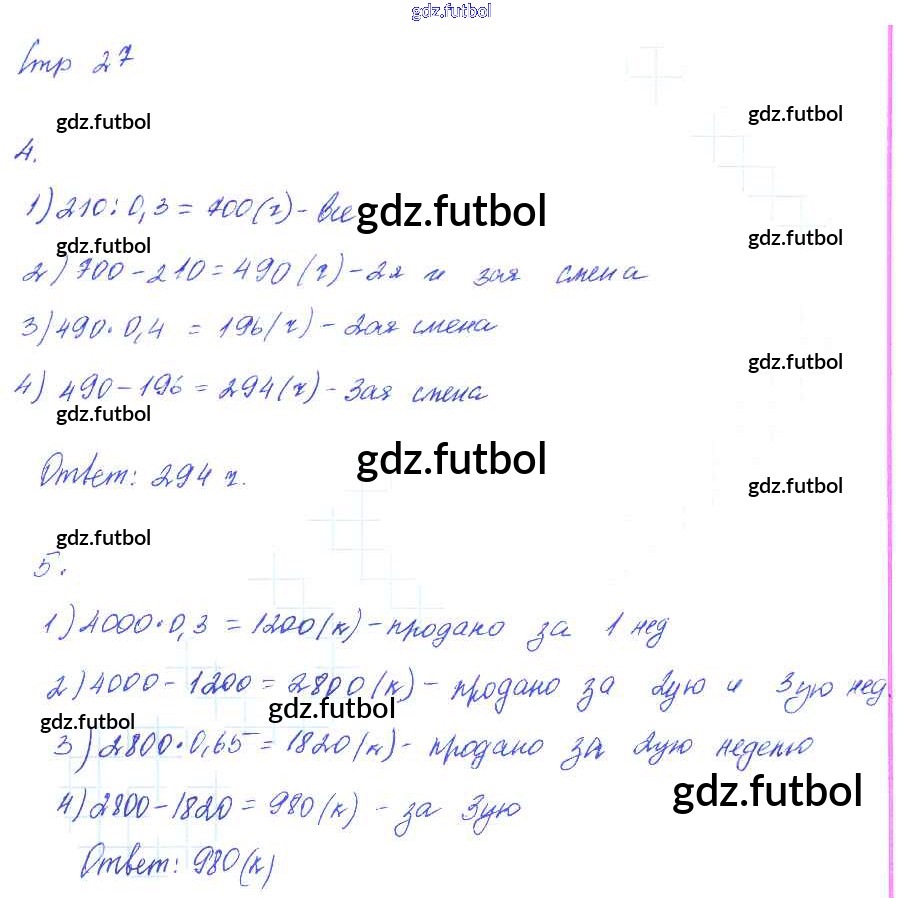 gdz.futbol
Стр 27
gdz.futbol
gdz.futbol
4.
1) 210 : 0,3 = 700 (г) - все
gdz.futbol
gdz.futbol
gdz.futbol
2) 700 - 210 = 490 (г) - 2я и 3ая смена
3) 490 · 0,4 = 196 (г) - 2ая смена
gdz.futbol
4) 490 - 196 = 294 (г) - 3ая смена
gdz.futbol
gdz.futbol
Ответ: 294 г.
gdz.futbol
gdz.futbol
5.
1) 4000 · 0,3 = 1200 (к) - продано за 1 нед
2) 4000 - 1200 = 2800 (к) - продано за 2ую и 3ую нед.
gdz.futbol
gdz.futbol
3) 2800 · 0,65 = 1820 (к) - продано за 2ую неделю
gdz.futbol
4) 2800 - 1820 = 980 (к) - за 3ую
Ответ: 980 (к)